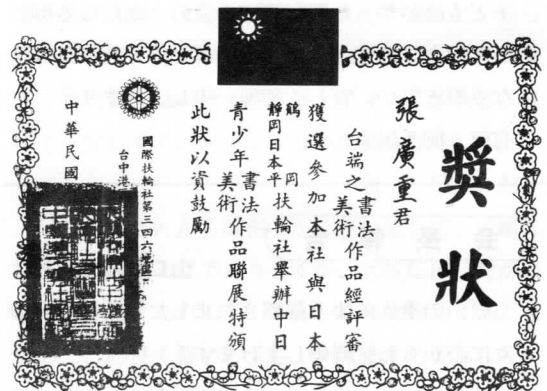 獎狀
張廣重君
台端之書法美術作品經評審
獲選參加本社與日本
鶴岡
靜岡日本平扶輪社舉辦中日
青少年書法美術作品聯展特頒
此狀以資鼓勵
國際扶輪社第三四六地區
台中港
中華民國